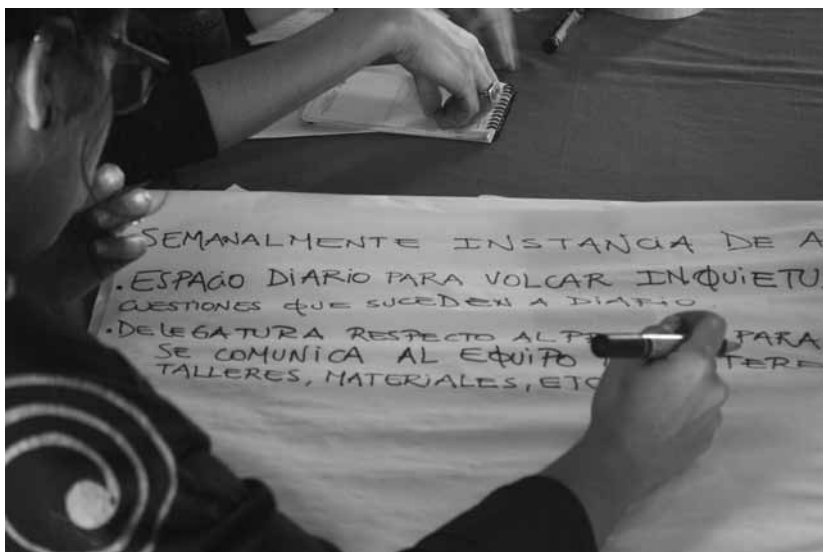 SEMANALMENTE INSTANCIA DE A
. ESPACIO DIARIO PARA VOLCAR INQUIETU
CUESTIONES QUE SUCEDEN A DIARIO.
. DELEGATURA RESPECTO AL PARA
SE COMUNICA AL EQUIPO
TALLERES, MATERIALES, ETC